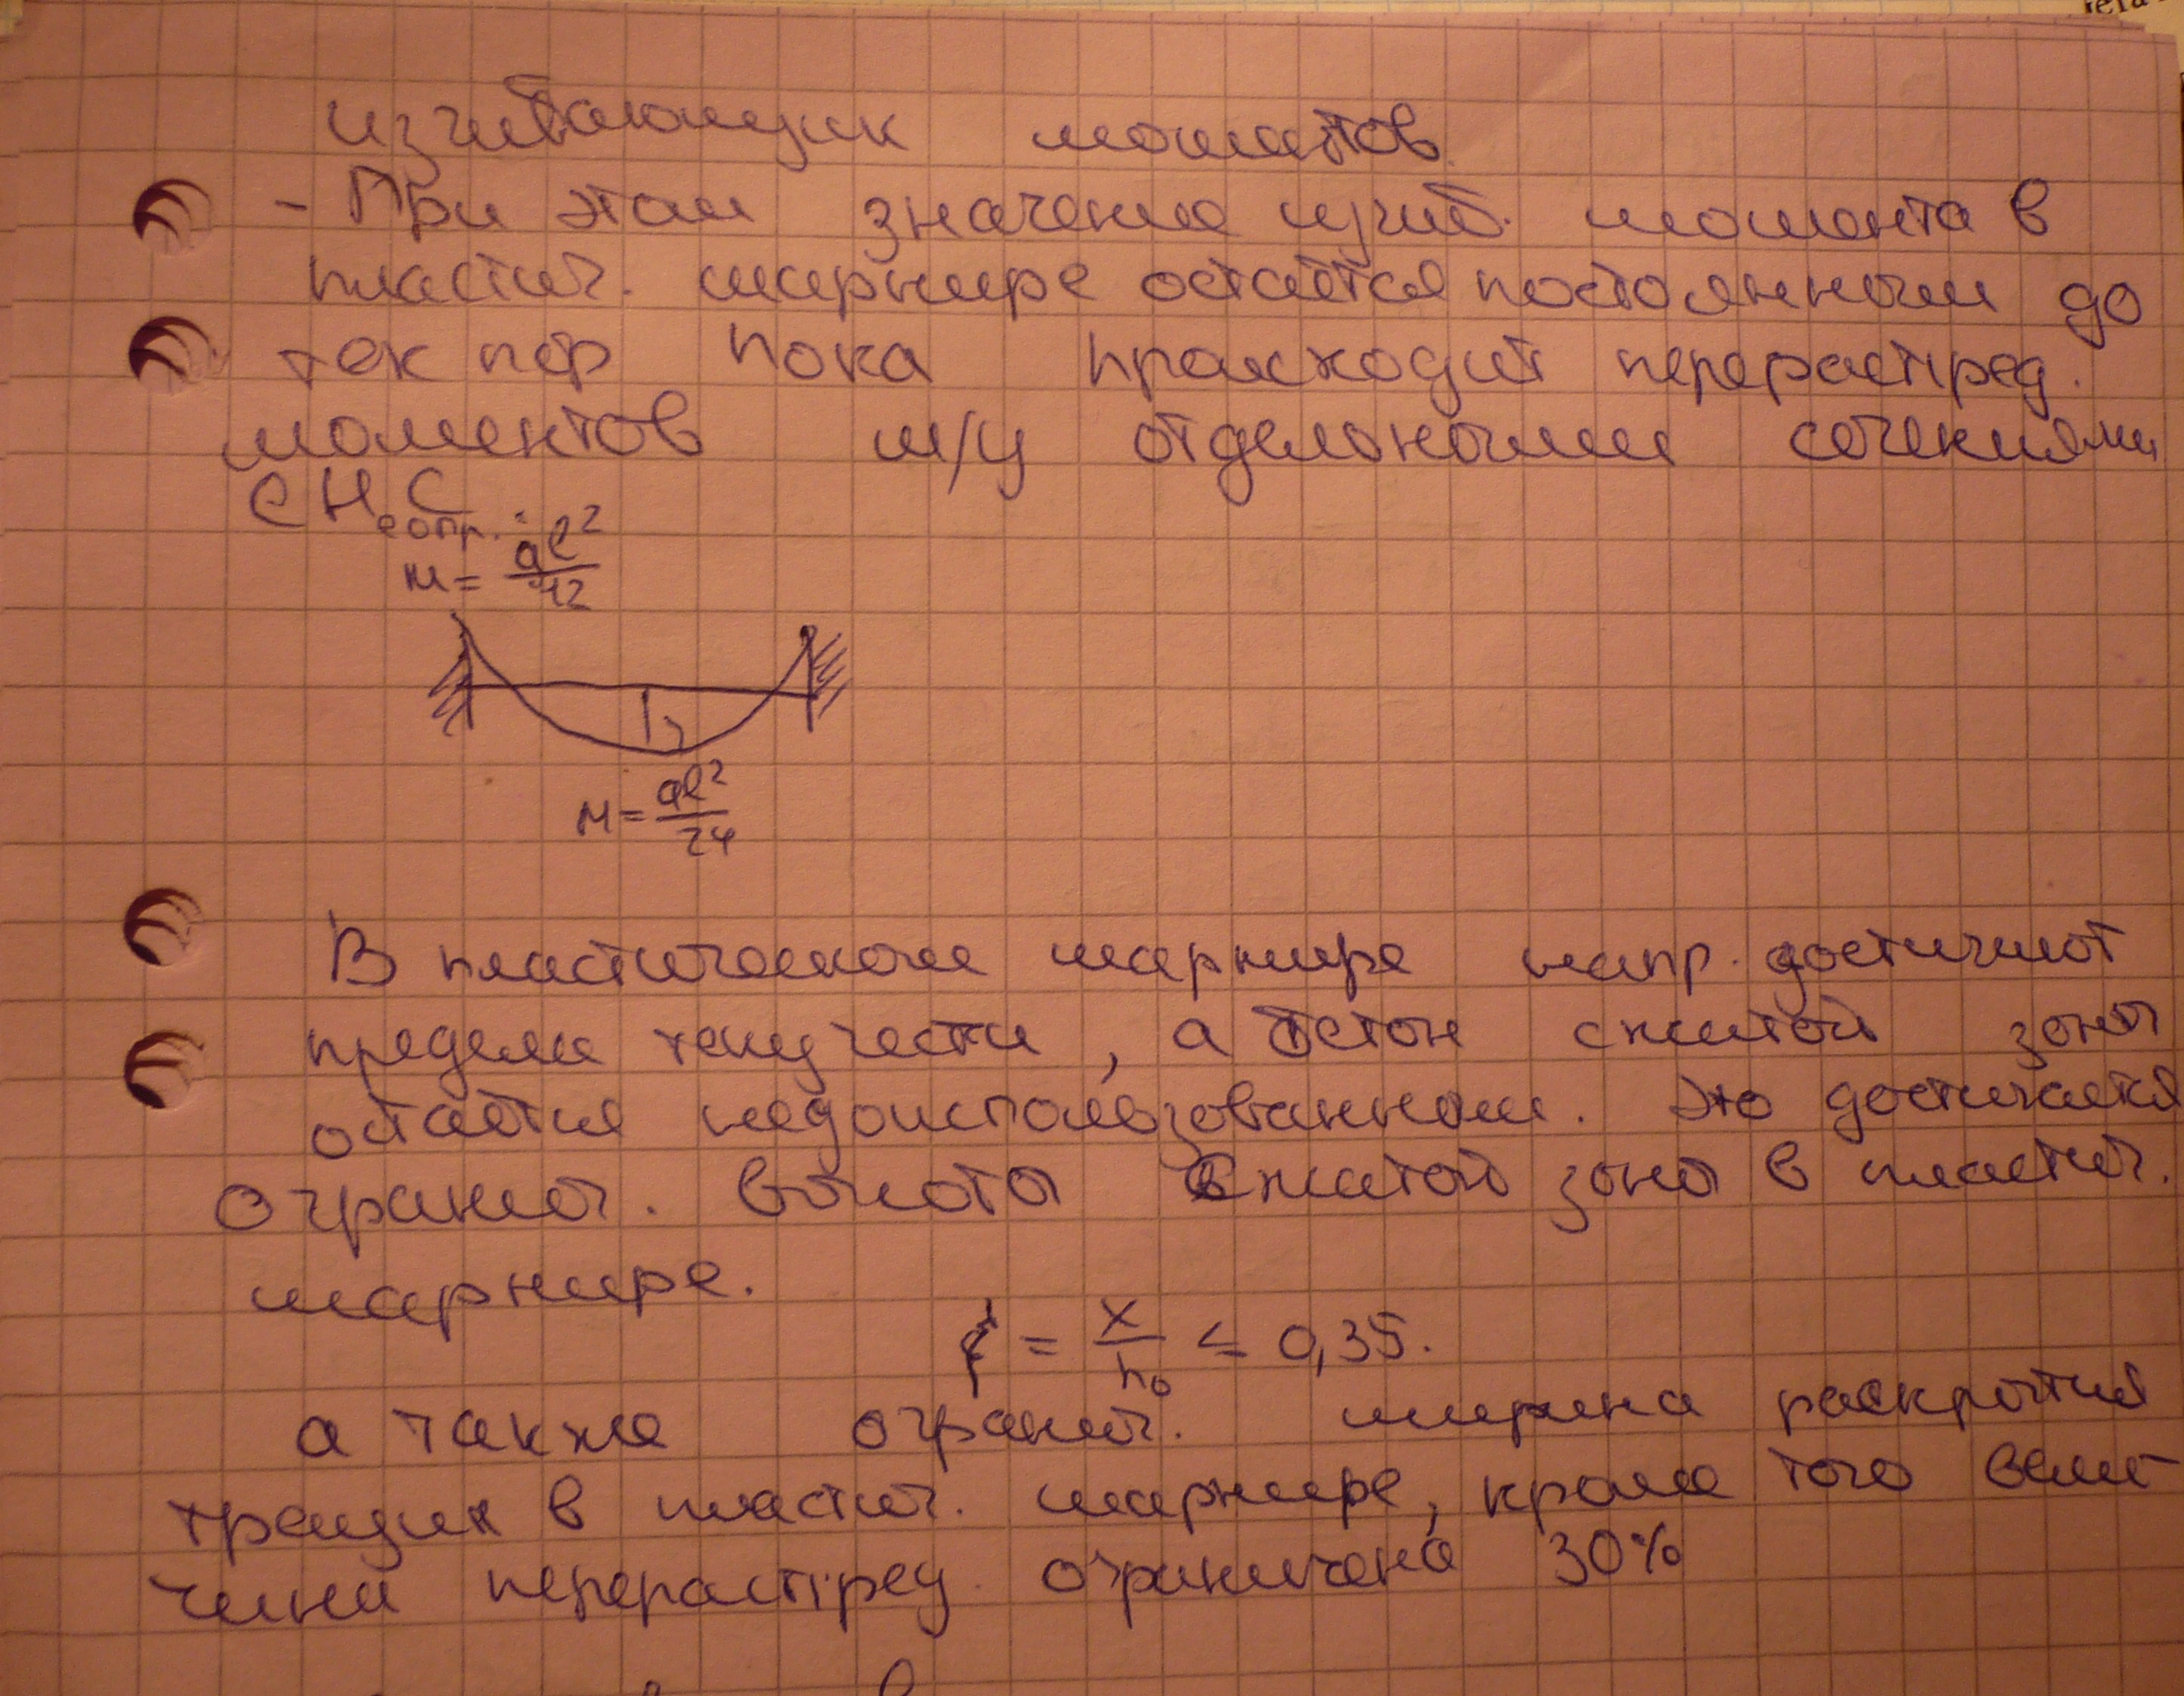 изгибающих моментов.
- При этом значение изгиб. момента в
пластич. шарнире остаётся постоянным до
тех пор пока происходит перераспред.
моментов м/у отдельными сечениями
СНС
еопр.
M = ql²/12
M = ql²/24
В пластическом шарнире напр. достигают
предела текучести, а бетон сжатой зоны
остаётся недоиспользованным. Это достигается
огранич. высоты сжатой зоны в пластич.
шарнире.
ξ = x/h₀ ≤ 0,35.
а также огранич. ширина раскрытия
трещин в пластич. шарнире, кроме того вели-
чина перераспред. ограничена 30%